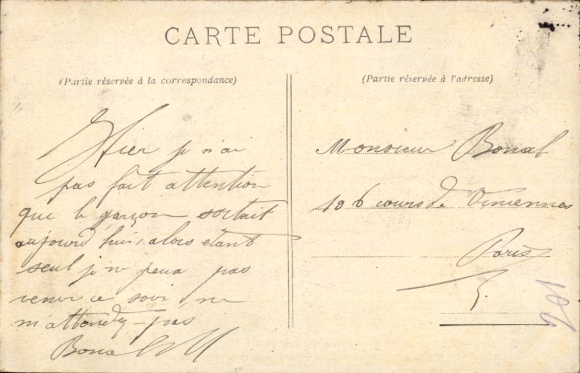 CARTE POSTALE
(Partie réservée à la correspondance)
(Partie réservée à l'adresse)
Hier je n'ai
pas fait attention
que le garçon sortait
aujourd'hui, alors étant
seul je ne peux pas
venir ce soir ne
m'attendez-pas
Monsieur Bonal
106 cours de Vincennes
Paris
201